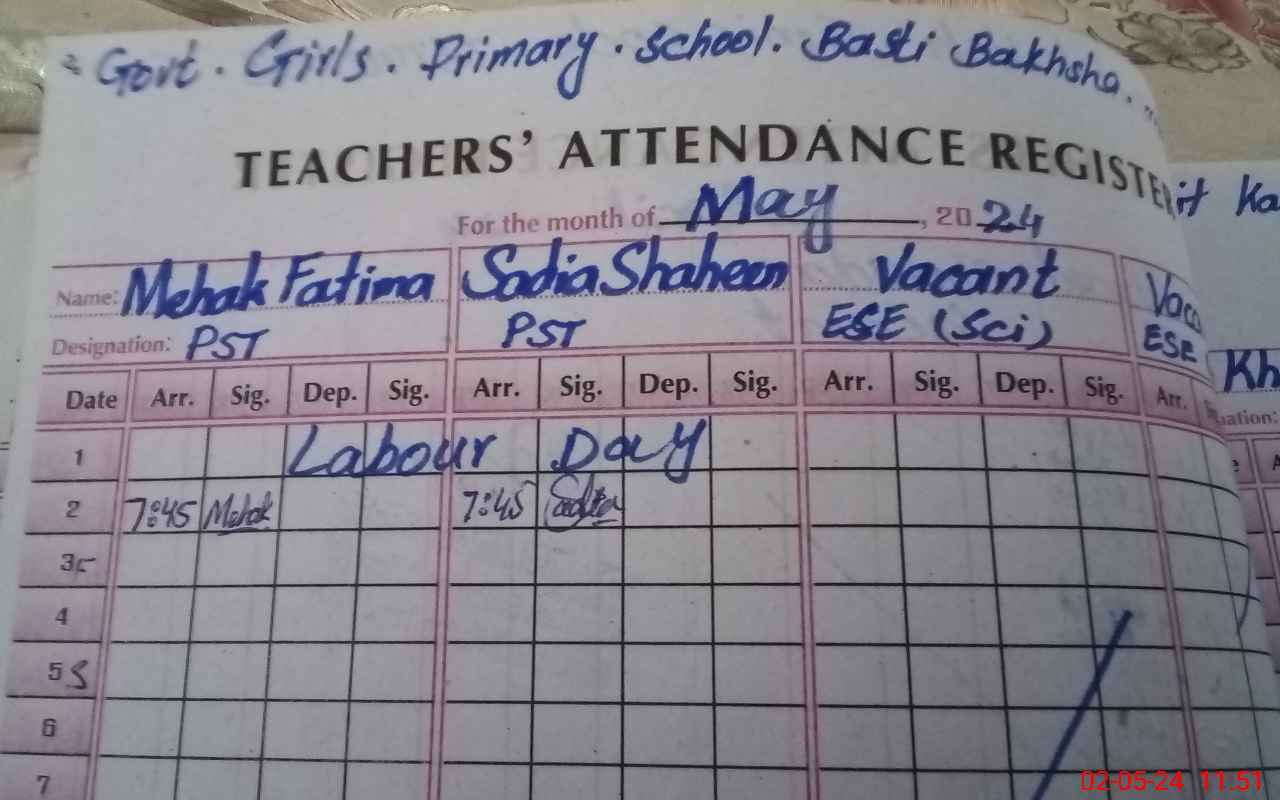 Govt. Girls. Primary. school. Basti Bakhsha.
TEACHERS' ATTENDANCE REGISTER
For the month of May, 2024
Name: Mehak Fatima Sadia Shaheen Vacant
Designation: PST PST ESE (Sci) ESE
Date Arr. Sig. Dep. Sig. Arr. Sig. Dep. Sig. Arr. Sig. Dep. Sig. Arr.
1 Labour Day
2 7:45 Mehak 7:45 Sadia
3
4
5 S
6
7
02-05-24 11:51